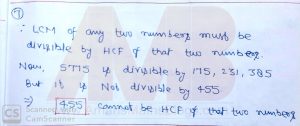 ⑦
∴ LCM of any two numbers must be
divisible by HCF of that two numbers.
Now, 5775 is divisible by 175, 231, 385
But it is Not divisible by 455
⇒ 455 cannot be HCF of that two numbers
CS Scanned with
CamScanner